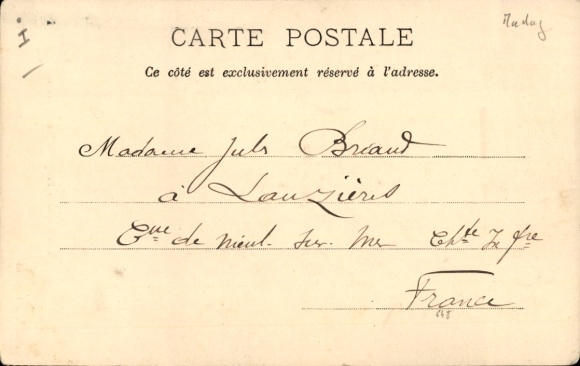 I
Madag
CARTE POSTALE
Ce côté est exclusivement réservé à l'adresse.
Madame Jules Briand
à Lauzières
Cne de Nieul-sur-Mer Chte Infre
France